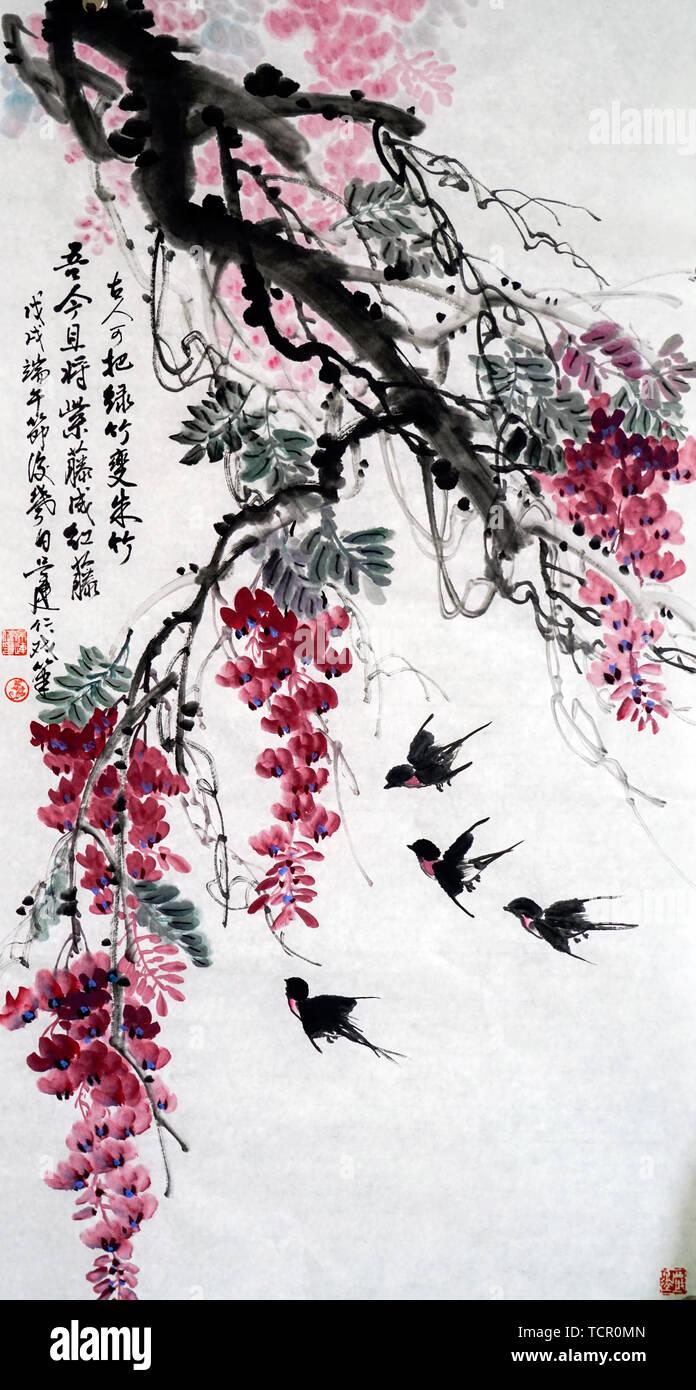 古人可把绿竹变朱竹
吾今且将紫藤成红藤
戊戌端午节后 建仁戏笔
alamy
alamy
Image ID: TCR0MN
www.alamy.com